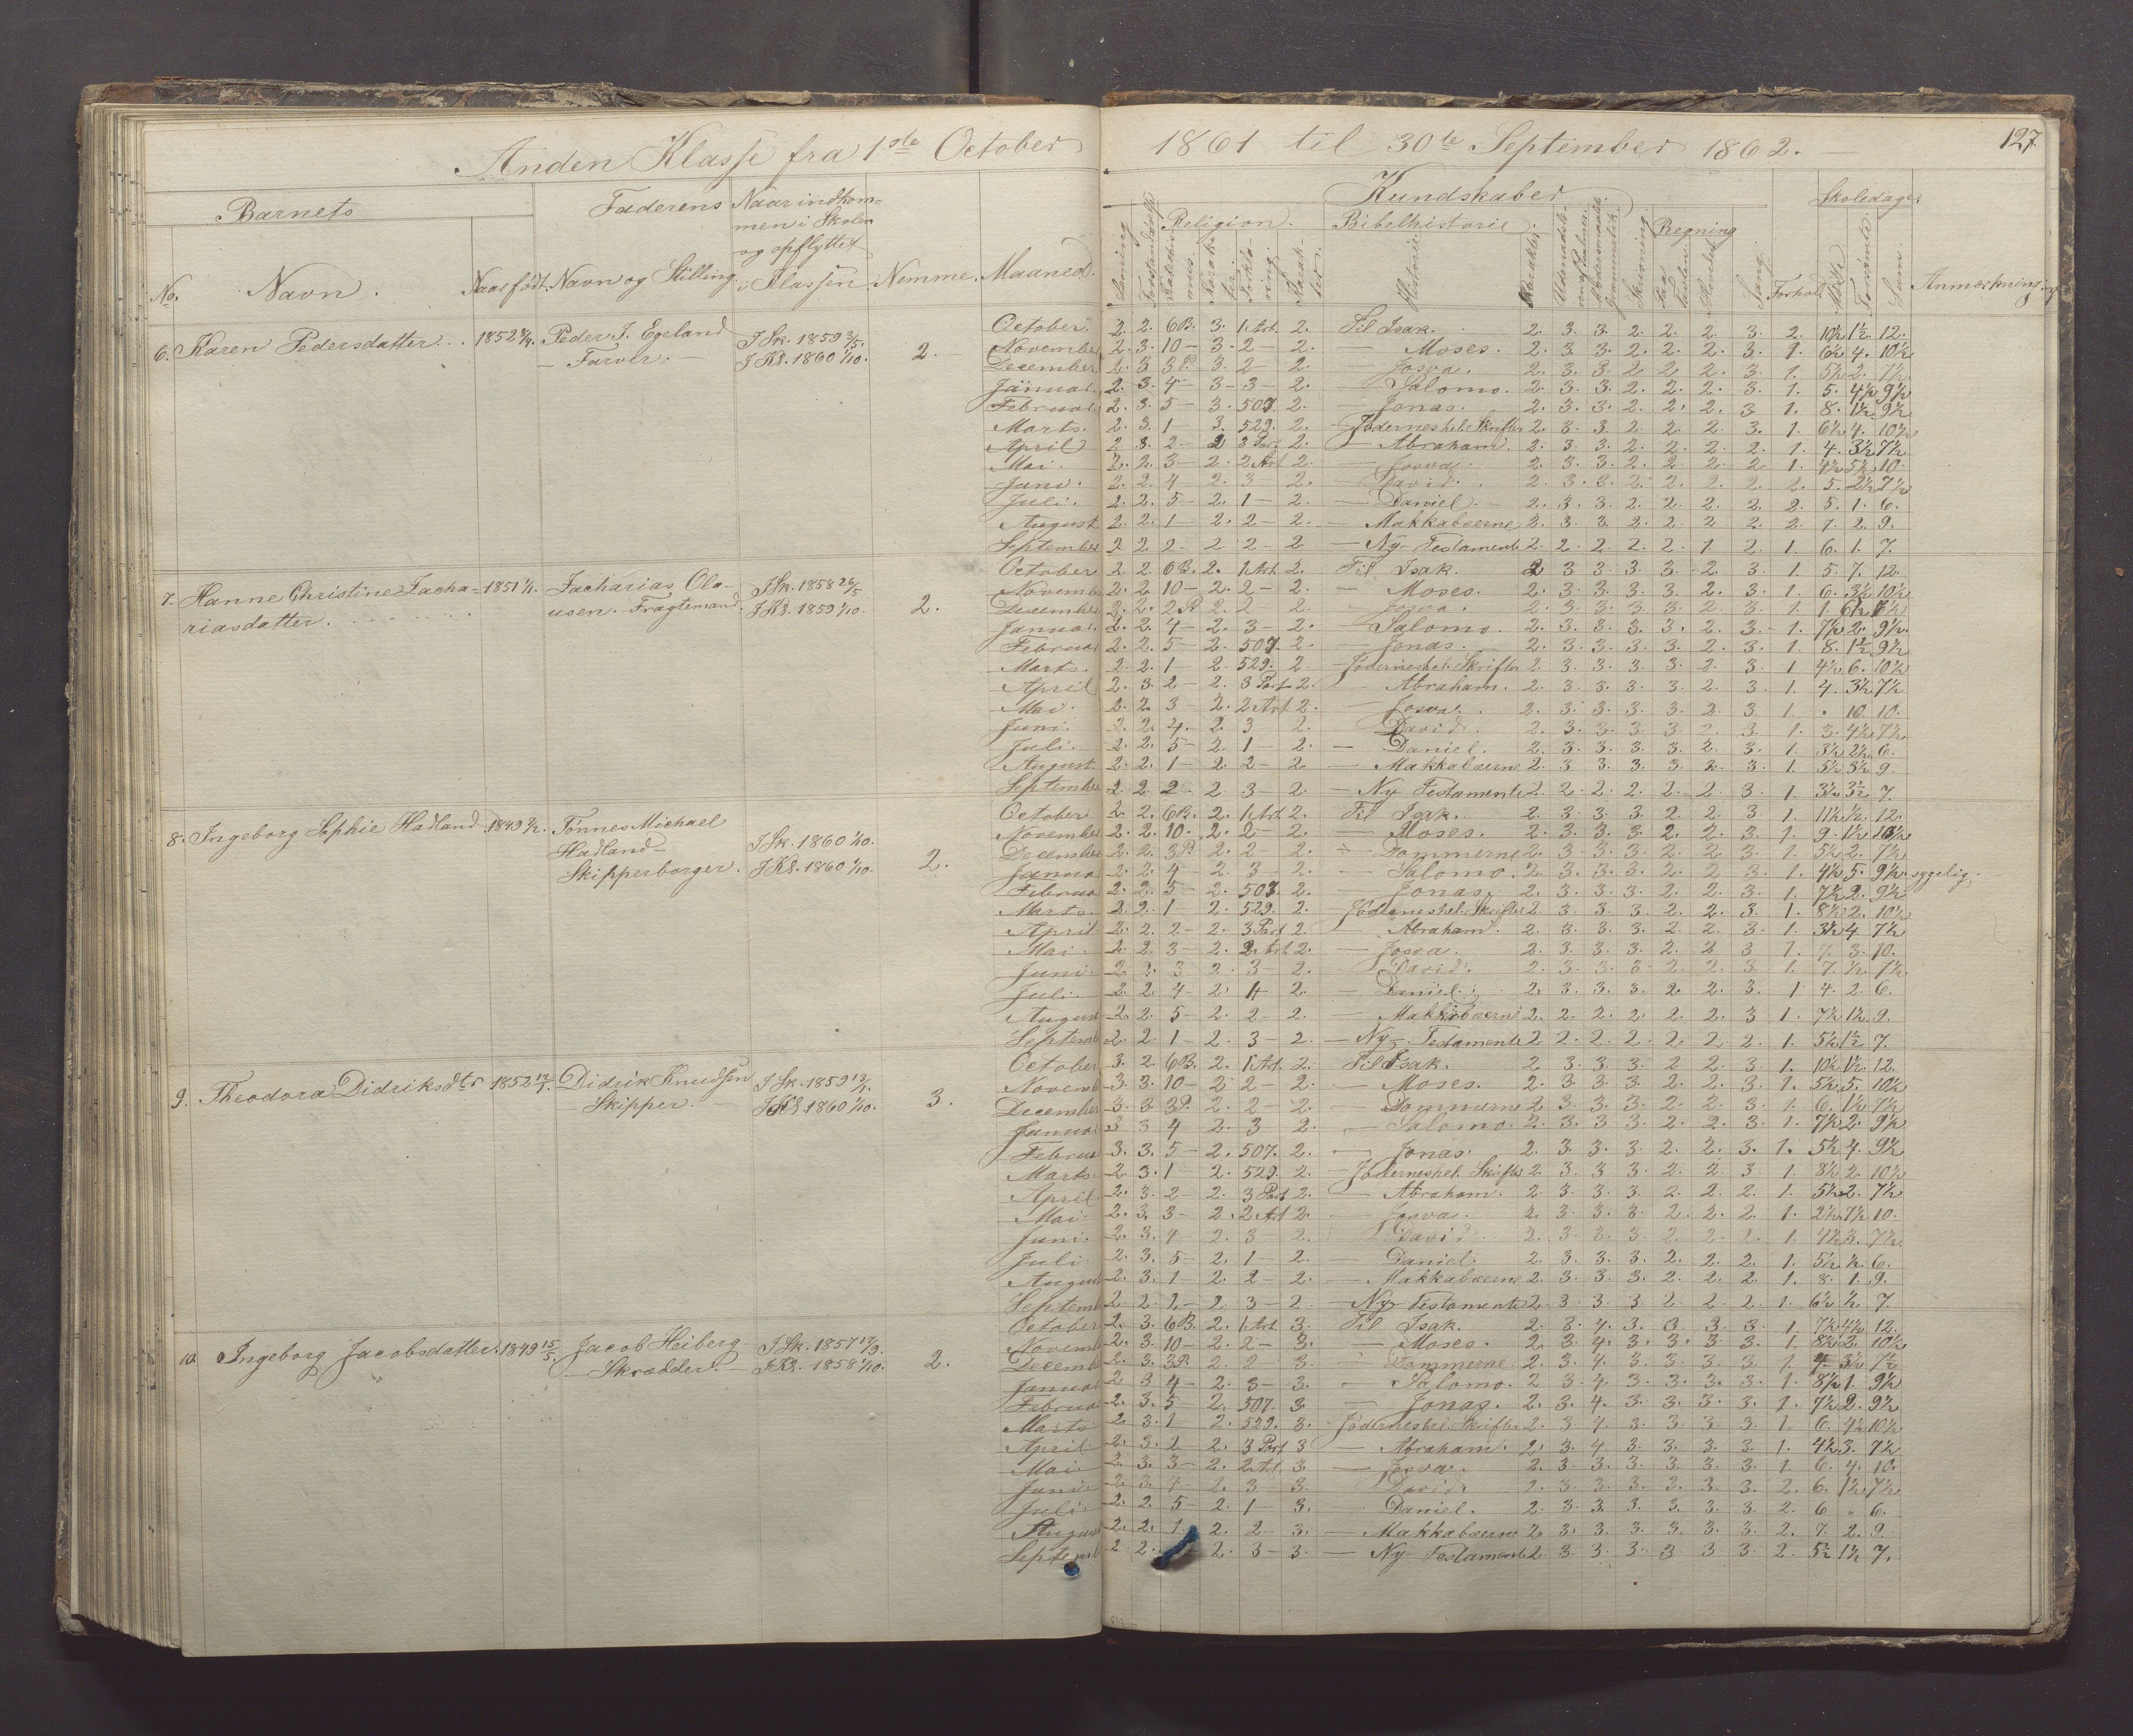 Anden Klasse fra 1ste October 1861 til 30te September 1862.
127
Barnets
Faderens
Naar indkom-
men i Skolen
og opflyttet
i Klassen
Nemme.
Maaned.
No.
Navn.
Naar født.
Navn og Stilling
Kundskaber
Religion.
Bibelhistorie.
Regning
Sang.
Forhold
Skoledage
Sum.
Anmærkning
6. Karen Pedersdatter.. 1852 Peder J. Egeland I Sk. 1859 3/5.
Farver. I Kl. 1860 1/10. 2.
October. 2. 2. 6B. 3. 1 Art. 2. Til Isak. 2. 3. 3. 2. 2. 2. 3. 2. 10½ 1½ 12.
November 2. 3. 10 3. 2 2. Moses. 2. 3. 3. 2. 2. 2. 3. 1. 6½ 4. 10½
December 2. 3. 3P. 3. 2 2. Josva. 2. 3. 3. 2. 2. 2. 3. 1. 5½ 2. 7½
Januar. 2. 3. 4 3 3 2. Salomo. 2. 3. 3. 2. 2. 2. 3. 1. 5. 4½ 9½
Februar. 2. 3. 5 3. 507. 2. Jonas. 2. 3. 3. 2. 2. 2. 3 1. 8. 1½ 9½
Marts. 2. 3. 1 3. 529. 2. Jødernes hel. Skrifter 2. 3. 3. 2. 2. 2. 3. 1. 6½ 4. 10½
April 2 3. 2 2 3 Part 2. Abraham. 2. 3. 3. 2. 2. 2. 2. 1. 4. 3½ 7½
Mai. 2. 2. 3 2. 2 Art 2. Josva. 2. 3. 3. 2. 2. 2. 2 1. 4½ 5½ 10.
Juni. 2. 2. 4 2. 3 2. David. 2. 3. 3. 2. 2. 2. 2. 2. 5. 2½ 7½
Juli. 2. 2. 5 2. 1 2. Daniel. 2. 3. 3. 2. 2. 2. 2. 2. 5. 1. 6.
August 2. 2. 1 2. 2 2. Makkabæerne 2. 3. 3. 2. 2. 2 2. 2. 7. 2. 9.
September 2 2. 2 2. 2 2 Ny Testamente 2. 2. 2. 2. 2. 1. 2. 1. 6. 1. 7.
7. Hanne Christine Zacha- 1851 Zacharias Ola- I Sk. 1858 26/5
riasdatter. usen. Fragtemand. I Kl. 1859 1/10. 2.
October 2. 2 6B. 2. 1 Art. 2. Til Isak. 2 3 3. 3. 3. 2. 3. 1. 5. 7. 12.
November 2. 2. 10 2. 2 2. Moses. 2. 3. 3. 3. 3. 2. 3. 1. 6. 3½ 10½
December 2. 2. 2P. 2. 2 2. Josva. 2. 3. 3. 3. 3. 2. 3. 1. 1. 6½ 7½
Januar. 2. 2. 4 2. 3 2. Salomo. 2. 3. 3. 3. 3. 2. 3. 1. 7½ 2. 9½
Februar 2. 2. 5 2. 507. 2. Jonas. 2. 3. 3. 3. 3. 2. 3. 1. 8. 1½ 9½
Marts. 2. 2. 1 2. 529. 2. Jødernes hel. Skrifter 2. 3. 3. 3. 3. 2. 3. 1 4½ 6. 10½
April 2. 3. 2 2. 3 Part 2. Abraham. 2. 3. 3. 3. 3. 2. 3. 1. 4. 3½ 7½
Mai. 2. 2 3 2. 2 Art. 2. Josva. 2. 3. 3. 3. 3. 2. 3 1. " 10. 10.
Juni. 2. 2 4. 2. 3 2. David. 2. 3. 3. 3. 3. 2 3. 1. 3. 4½ 7½
Juli. 2. 2. 5 2. 1 2. Daniel. 2. 3. 3. 3. 3. 2. 3. 1 3½ 2½ 6.
August. 2. 2. 1 2. 2 2 Makkabæerne 2. 3 3. 3. 3. 2. 3. 1. 5½ 3½ 9.
September 2 2. 2 2 3 2. Ny Testamente 2. 2. 2. 2. 2. 2. 3. 1 3½ 3½ 7.
8. Ingeborg Sophie Hadland 1849 Tønnes Michael I Sk. 1860 1/10.
Hadland I Kl. 1860 1/10. 2.
Skipperborger.
October 2. 2. 6B. 2. 1 Art 2. Til Isak. 2. 3. 3. 3. 2. 2. 3. 1. 11½ ½ 12.
November 2. 2. 10. 2. 2 2. Moses. 2. 3. 3. 3. 2. 2. 3. 1. 9. 1½ 10½
December 2. 2. 3P. 2. 2 2. Dommerne 2. 3. 3. 3. 2. 2. 3. 1. 5½ 2. 7½
Januar 2. 2 4 2. 3 2. Salomo. 2. 3. 3. 3. 2. 2 3. 1. 4½ 5. 9½ sygelig.
Februar 2. 2. 5 2. 507. 2. Jonas. 2. 3. 3. 3. 2. 2. 3. 1. 7½ 2. 9½
Marts. 2. 2. 1 2. 529. 2. Jødernes hel. Skrifter 2 3. 3. 3. 2. 2. 3. 1. 8½ 2. 10½
April 2. 2. 2 2. 3 Part 2. Abraham. 2. 3. 3. 3. 2. 2. 3. 1. 3½ 4. 7½
Mai. 2. 2. 3 2. 2 Art 2. Josva. 2. 3. 3. 3. 2. 2. 3 1. 7. 3. 10.
Juni. 2. 2. 3 2. 3 2. David. 2. 3. 3. 3. 2. 2. 3. 1. 7. ½ 7½
Juli. 2. 2. 4 2. 1 2. Daniel. 2. 3. 3. 3. 2. 2. 3. 1 4. 2. 6.
August 2. 2. 5 2. 2 2. Makkabæerne 2. 2. 2. 2. 2. 2. 3 1. 7½ 1½ 9.
Septemb 2. 2. 1 2. 3 2. Ny Testamente 2 2. 2. 2. 2. 2. 2. 1. 5½ 1½ 7.
9. Theodora Didriksdtr 1852 12/1. Didrik Knudsen I Sk. 1859
Skipper. I Kl. 1860 1/10. 3.
October 3. 2 6B. 2. 1 Art. 2. Til Isak. 2 3. 3. 3. 2 2. 3. 1. 10½ 1½ 12.
Novemb 3. 3. 10 2. 2 2. Moses. 2. 3. 3. 3. 2. 2. 3. 1. 5½ 5. 10½
December 3. 3. 3P. 2. 2 2. Dommerne 2. 3. 3. 3. 2. 2. 3. 1. 6. 1½ 7½
Januar 3 3 4 2. 3 2. Salomo. 2. 3. 3. 3. 2. 2. 3. 1. 7½ 2. 9½
Februa 3. 3. 5 2. 507. 2. Jonas. 2. 3. 3. 3. 2. 2. 3. 1. 5½ 4. 9½
Marts. 2. 3. 1 2. 529. 2. Jødernes hel. Skrifter 2. 3. 3. 3. 2. 2. 3. 1. 8½ 2. 10½
April 2. 3. 2 2. 3 Part 2. Abraham. 2. 3. 3. 3. 2. 2. 2. 1. 5½ 2. 7½
Mai 2. 3. 3 2. 2 Art 2. Josva. 2. 3. 3. 3. 2. 2. 2. 1. 2½ 7½ 10.
Juni. 2. 3. 4 2. 3 2. David. 2. 3. 3. 3. 2. 2. 2. 1. 4½ 3. 7½
Juli 2. 3. 5 2. 1 2. Daniel. 2. 3. 3. 3. 2. 2. 2. 1. 5½ ½ 6.
August 2. 3. 1 2. 2 2. Makkabæerne 2. 3. 3. 3. 2. 2. 2. 1. 8. 1. 9.
Septemb 2 2. 2 2 3 2. Ny Testamente 2. 3. 3. 3. 2 2. 2. 1. 6½ ½ 7.
10. Ingeborg Jacobsdatter. 1849 15/5. Jacob Heiberg I Sk. 1857
Skrædder. I Kl. 1858 1/10. 2.
October 2. 3. 6B. 2. 1 Art. 3. Til Isak. 2. 3. 4. 3. 3 3. 3. 1. 7½ 4½ 12.
Novemb 2. 3. 10 2. 2 3. Moses. 2. 3. 4. 3. 3. 3. 3. 1. 8½ 2. 10½
Decemb 2. 3. 3P. 2. 2 3. Dommerne. 2. 3. 4. 3. 3. 3. 3. 1. 4 3½ 7½
Januar 2 3 4 2. 3 3. Salomo. 2 3. 4. 3. 3. 3. 3. 1. 8½ 1. 9½
Februa 2. 3. 5 2. 507. 3 Jonas. 2. 3. 4. 3. 3. 3. 3. 1. 7½ 2. 9½
Marts 2. 3. 1 2. 529. 3. Jødernes hel. Skrifter 2. 3. 4. 3. 3. 3. 3. 1. 6. 4½ 10½
April. 2. 3. 2 2. 3 Part 3 Abraham. 2. 3. 4. 3. 3. 3. 3. 1. 4½ 3. 7½
Mai 2. 3. 3 2. 2 Art 3. Josva. 2. 3. 3. 3. 3. 3. 3. 1. 6. 4. 10.
Juni. 2 3 4 2. 3 3. David. 2. 3. 3. 3. 3. 3. 3. 2. 6. 1½ 7½
Juli 2. 2. 5 2. 1 3. Daniel. 2. 3. 3. 3. 3. 3. 3. 2. 6 " 6.
August 2. 2. 1 2. 2 3. Makkabæerne 2. 3. 3. 3. 3. 3. 3. 2. 7. 2. 9.
Septemb 2 2. 2. 3 3. Ny Testamente 2 3. 3. 3. 3 3. 3 2. 5½ 1½ 7.